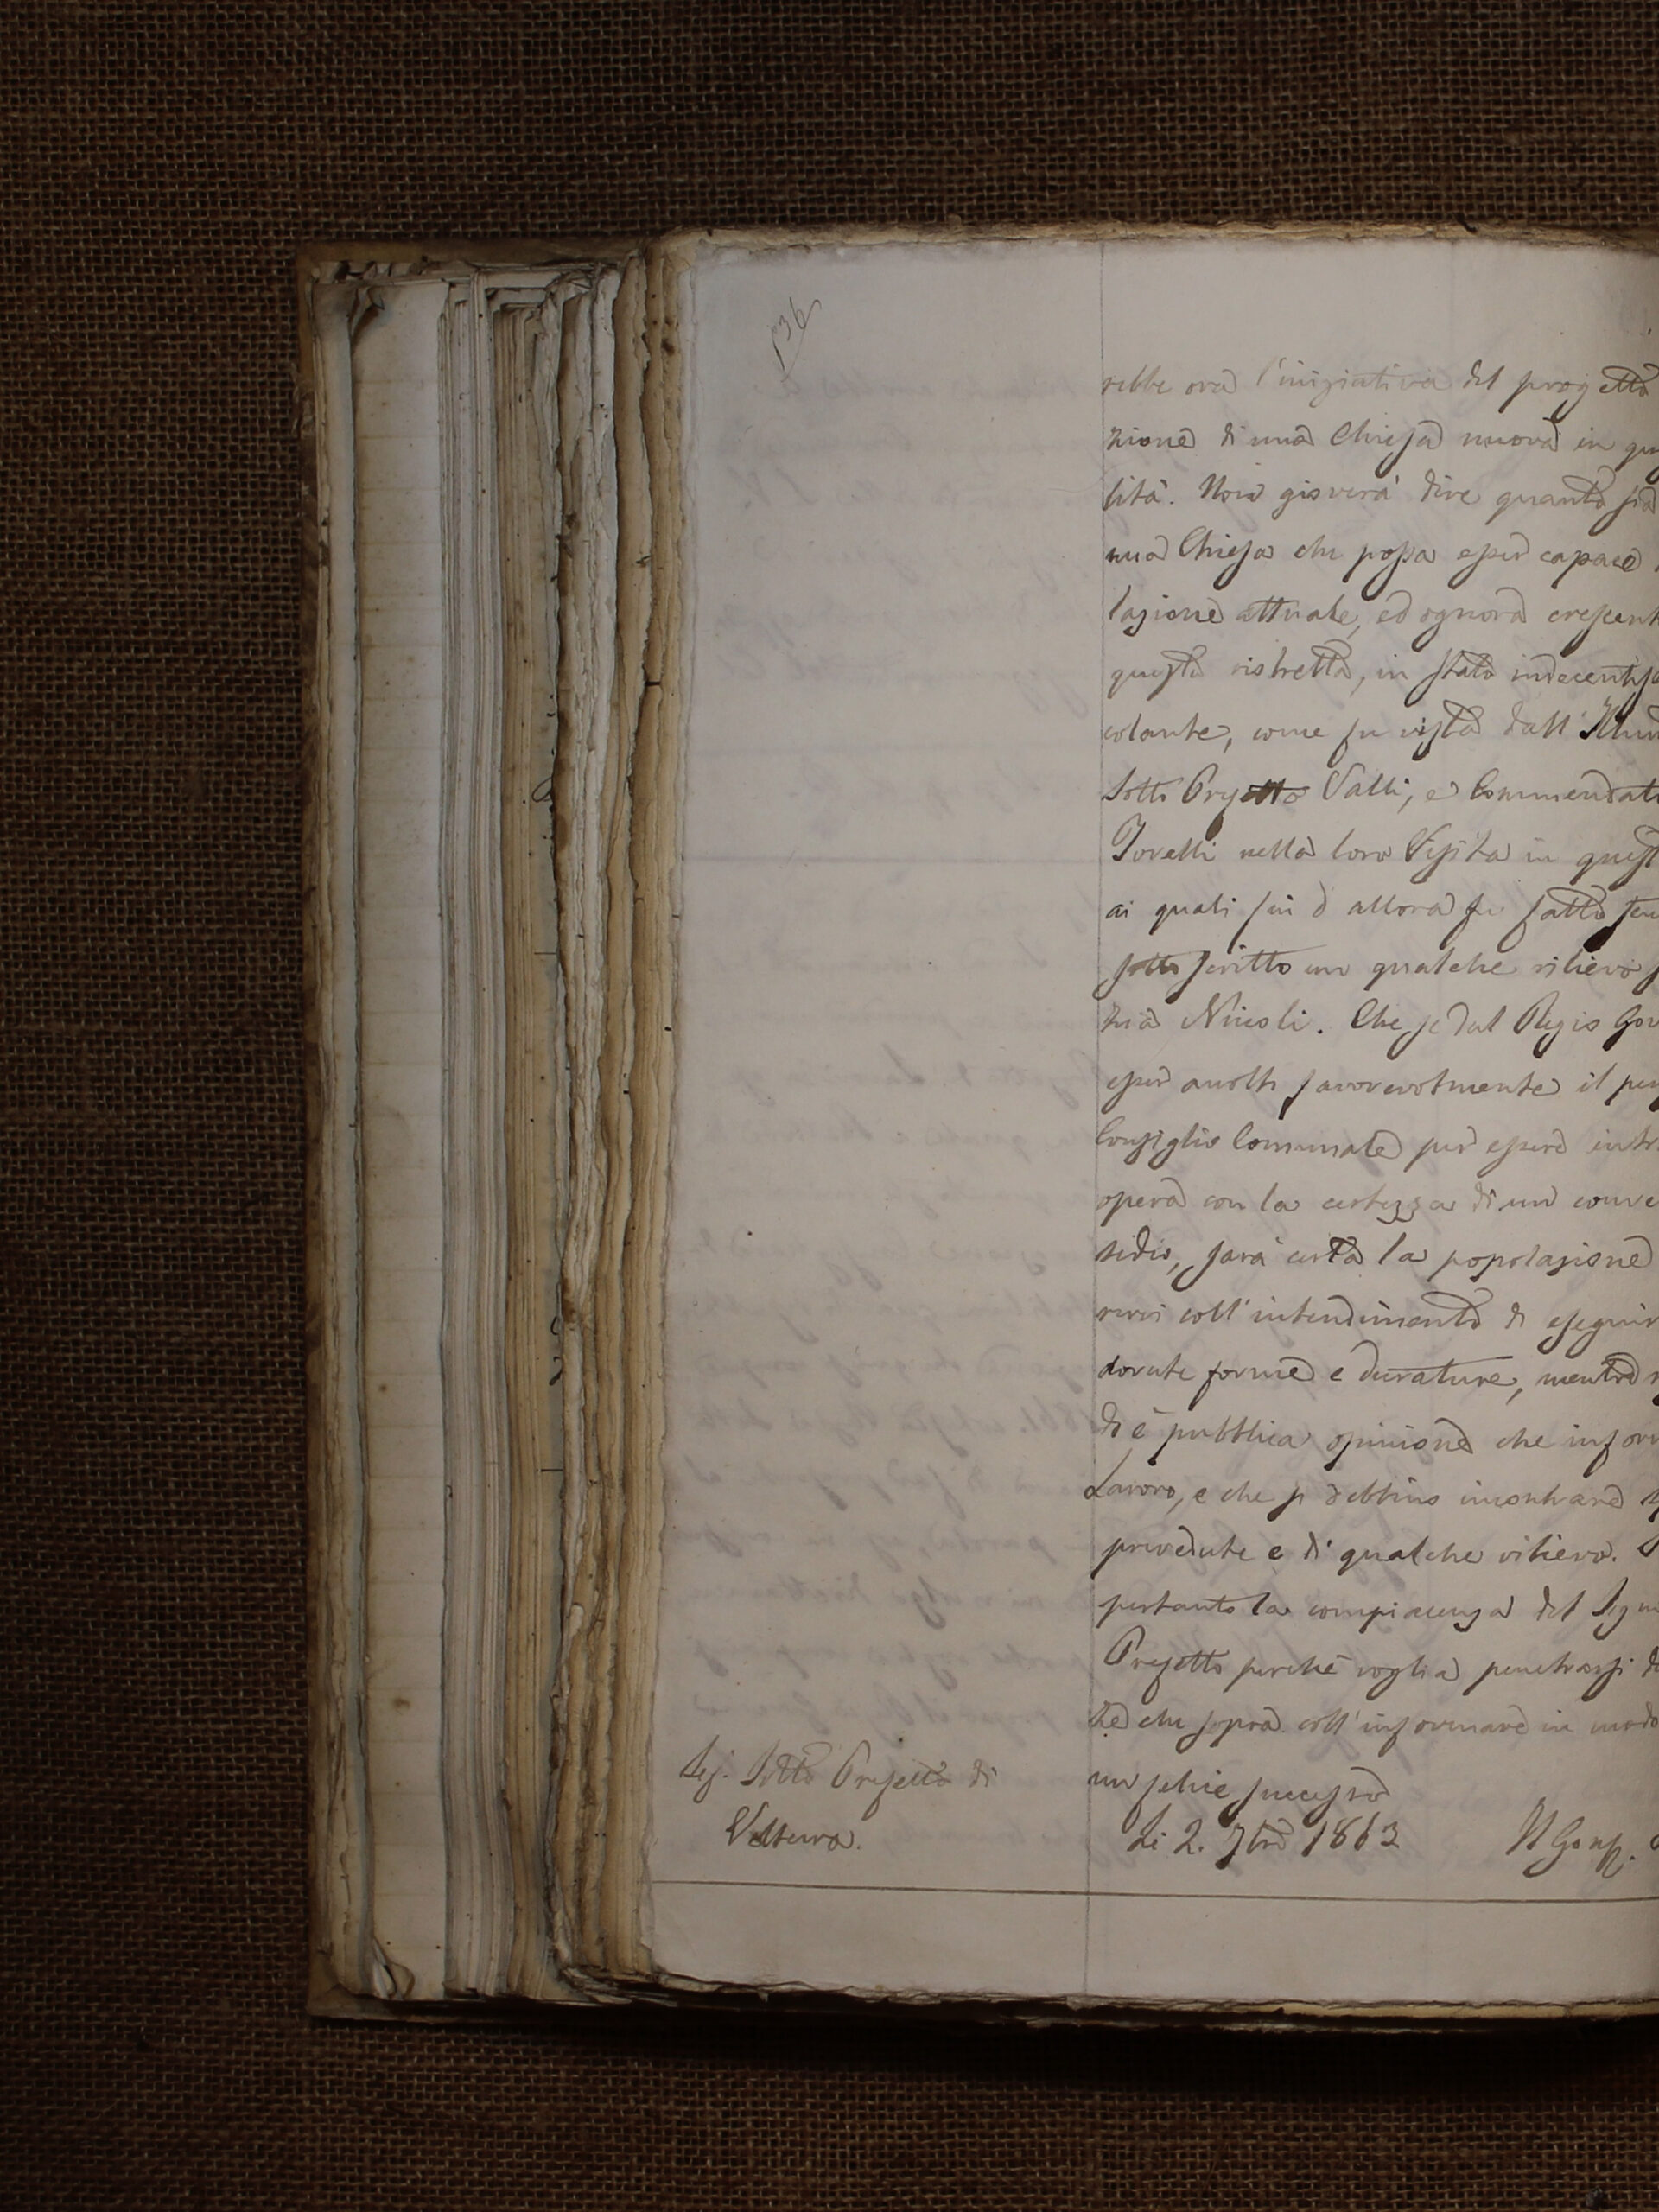 136
rebbe ora l'iniziativa del progetto
zione di una Chiesa nuova in que
lità. Non gioverà dire quanto sia
una Chiesa che possa esser capace
lazione attuale, ed ognora crescent
questa ristretta, in stato indecentiss
colante, come fu vista dall' Illus
Sotto Prefetto Valli, e Commendato
Torelli nella loro Visita in quest
ai quali fin d allora fu fatto
sottoscritto un qualche rilievo
zia Nicoli. Che se dal Regio Gov
esser accolto favorevolmente il
Consiglio Comunale per essere intr
opera con la certezza di un conve
sidio, sarà certa la popolazione
coll' intendimento di eseguir
dovute forme e durature, mentre
di è pubblica opinione che
Lavoro, e che si debbino incontrare
prevedute e di qualche rilievo.
pertanto la compiacenza del Sign
Prefetto perchè voglia penetrarsi
che sopra coll' informare in modo
un felice successo
Sig. Sotto Prefetto di
Volterra.
Li 2. 7bre 1863 Il Gonf.